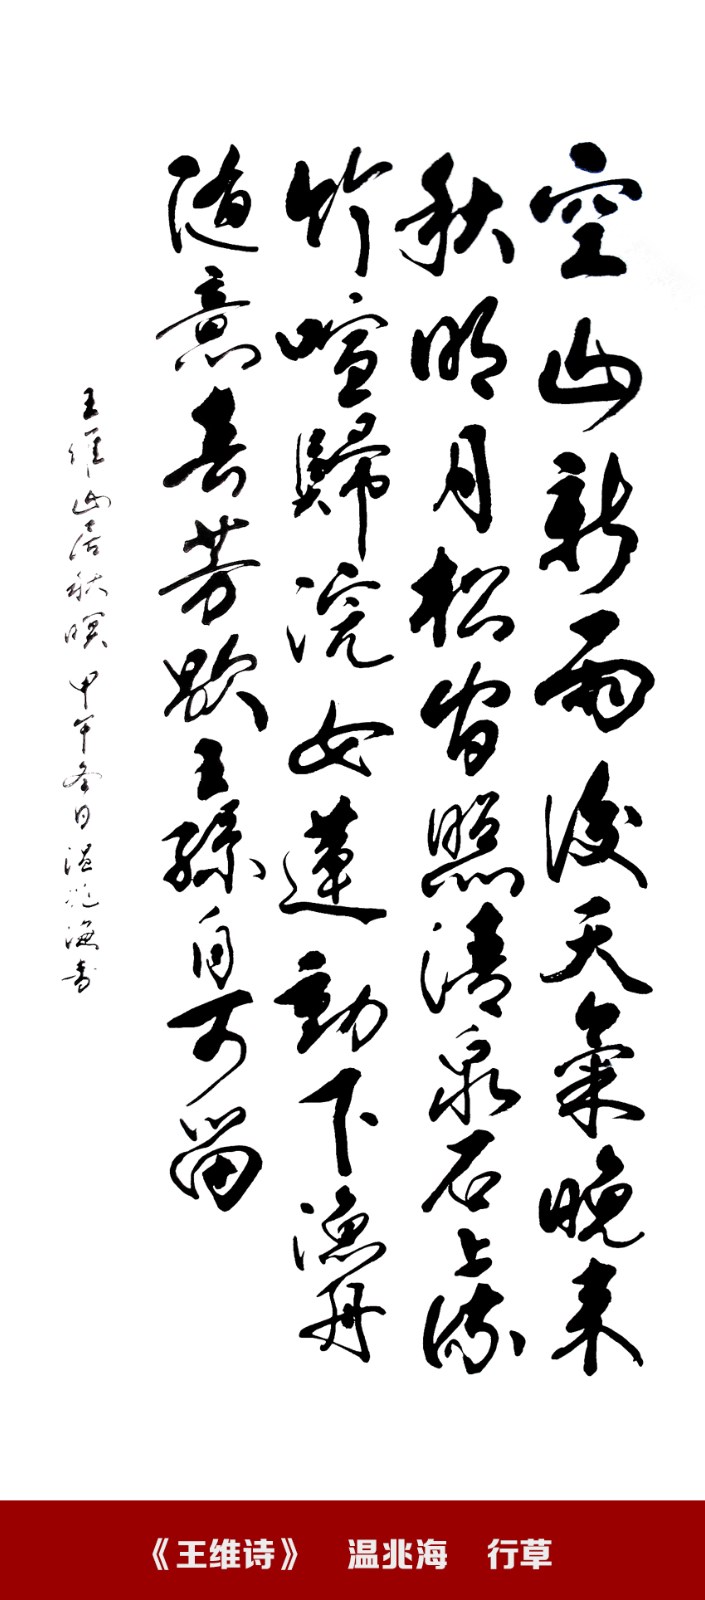 空山新雨後天氣晚来
秋明月松间照清泉石上流
竹喧歸浣女蓮動下漁舟
随意春芳歇王孫自可留
王维山居秋暝 甲午冬日 温兆海書
《王维诗》 温兆海 行草